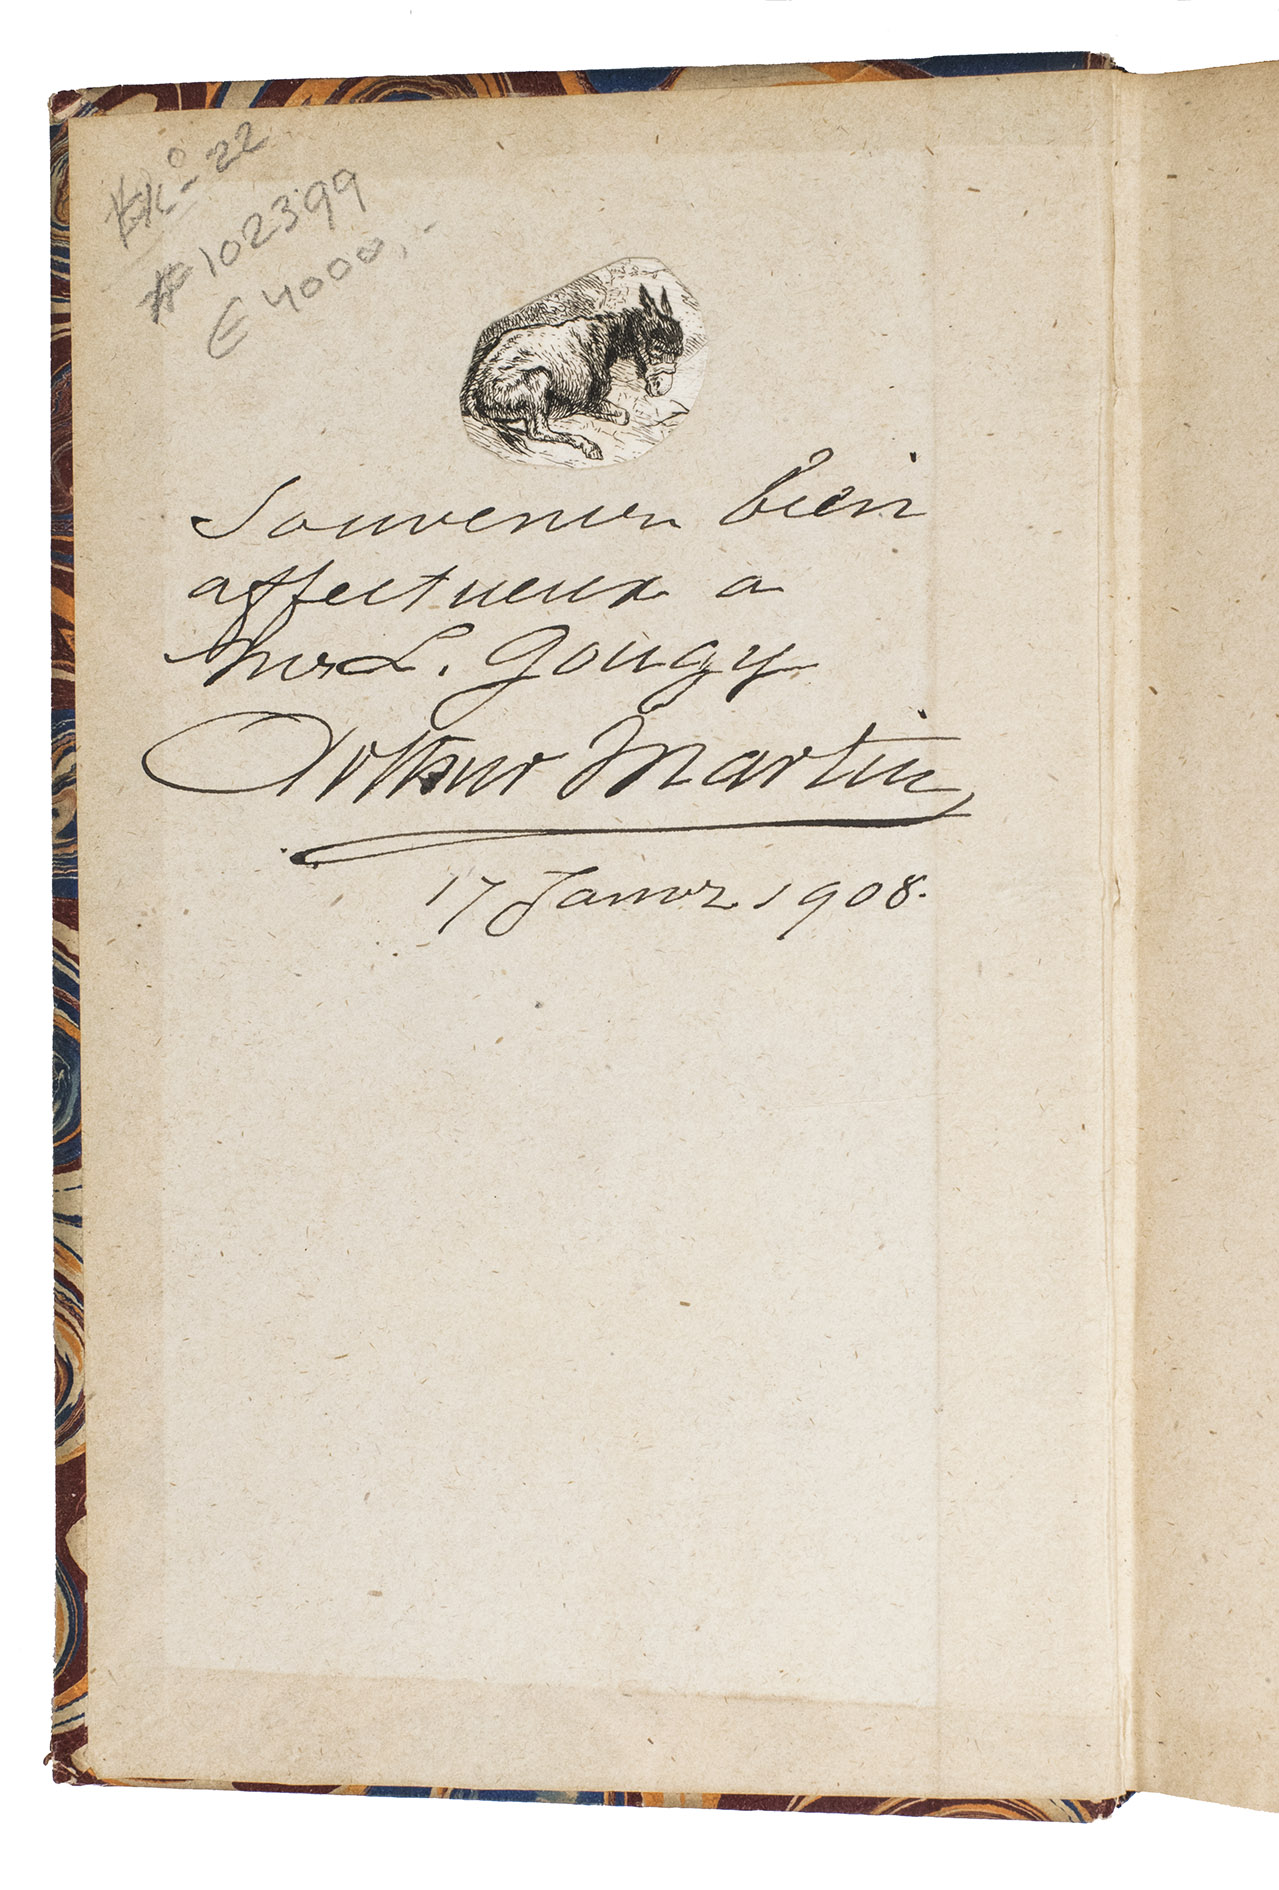 22
#102399
€4000,-
Souvenir bien
affectueux a
L. Gougy
Arthur Martin
17 Janvr 1908.